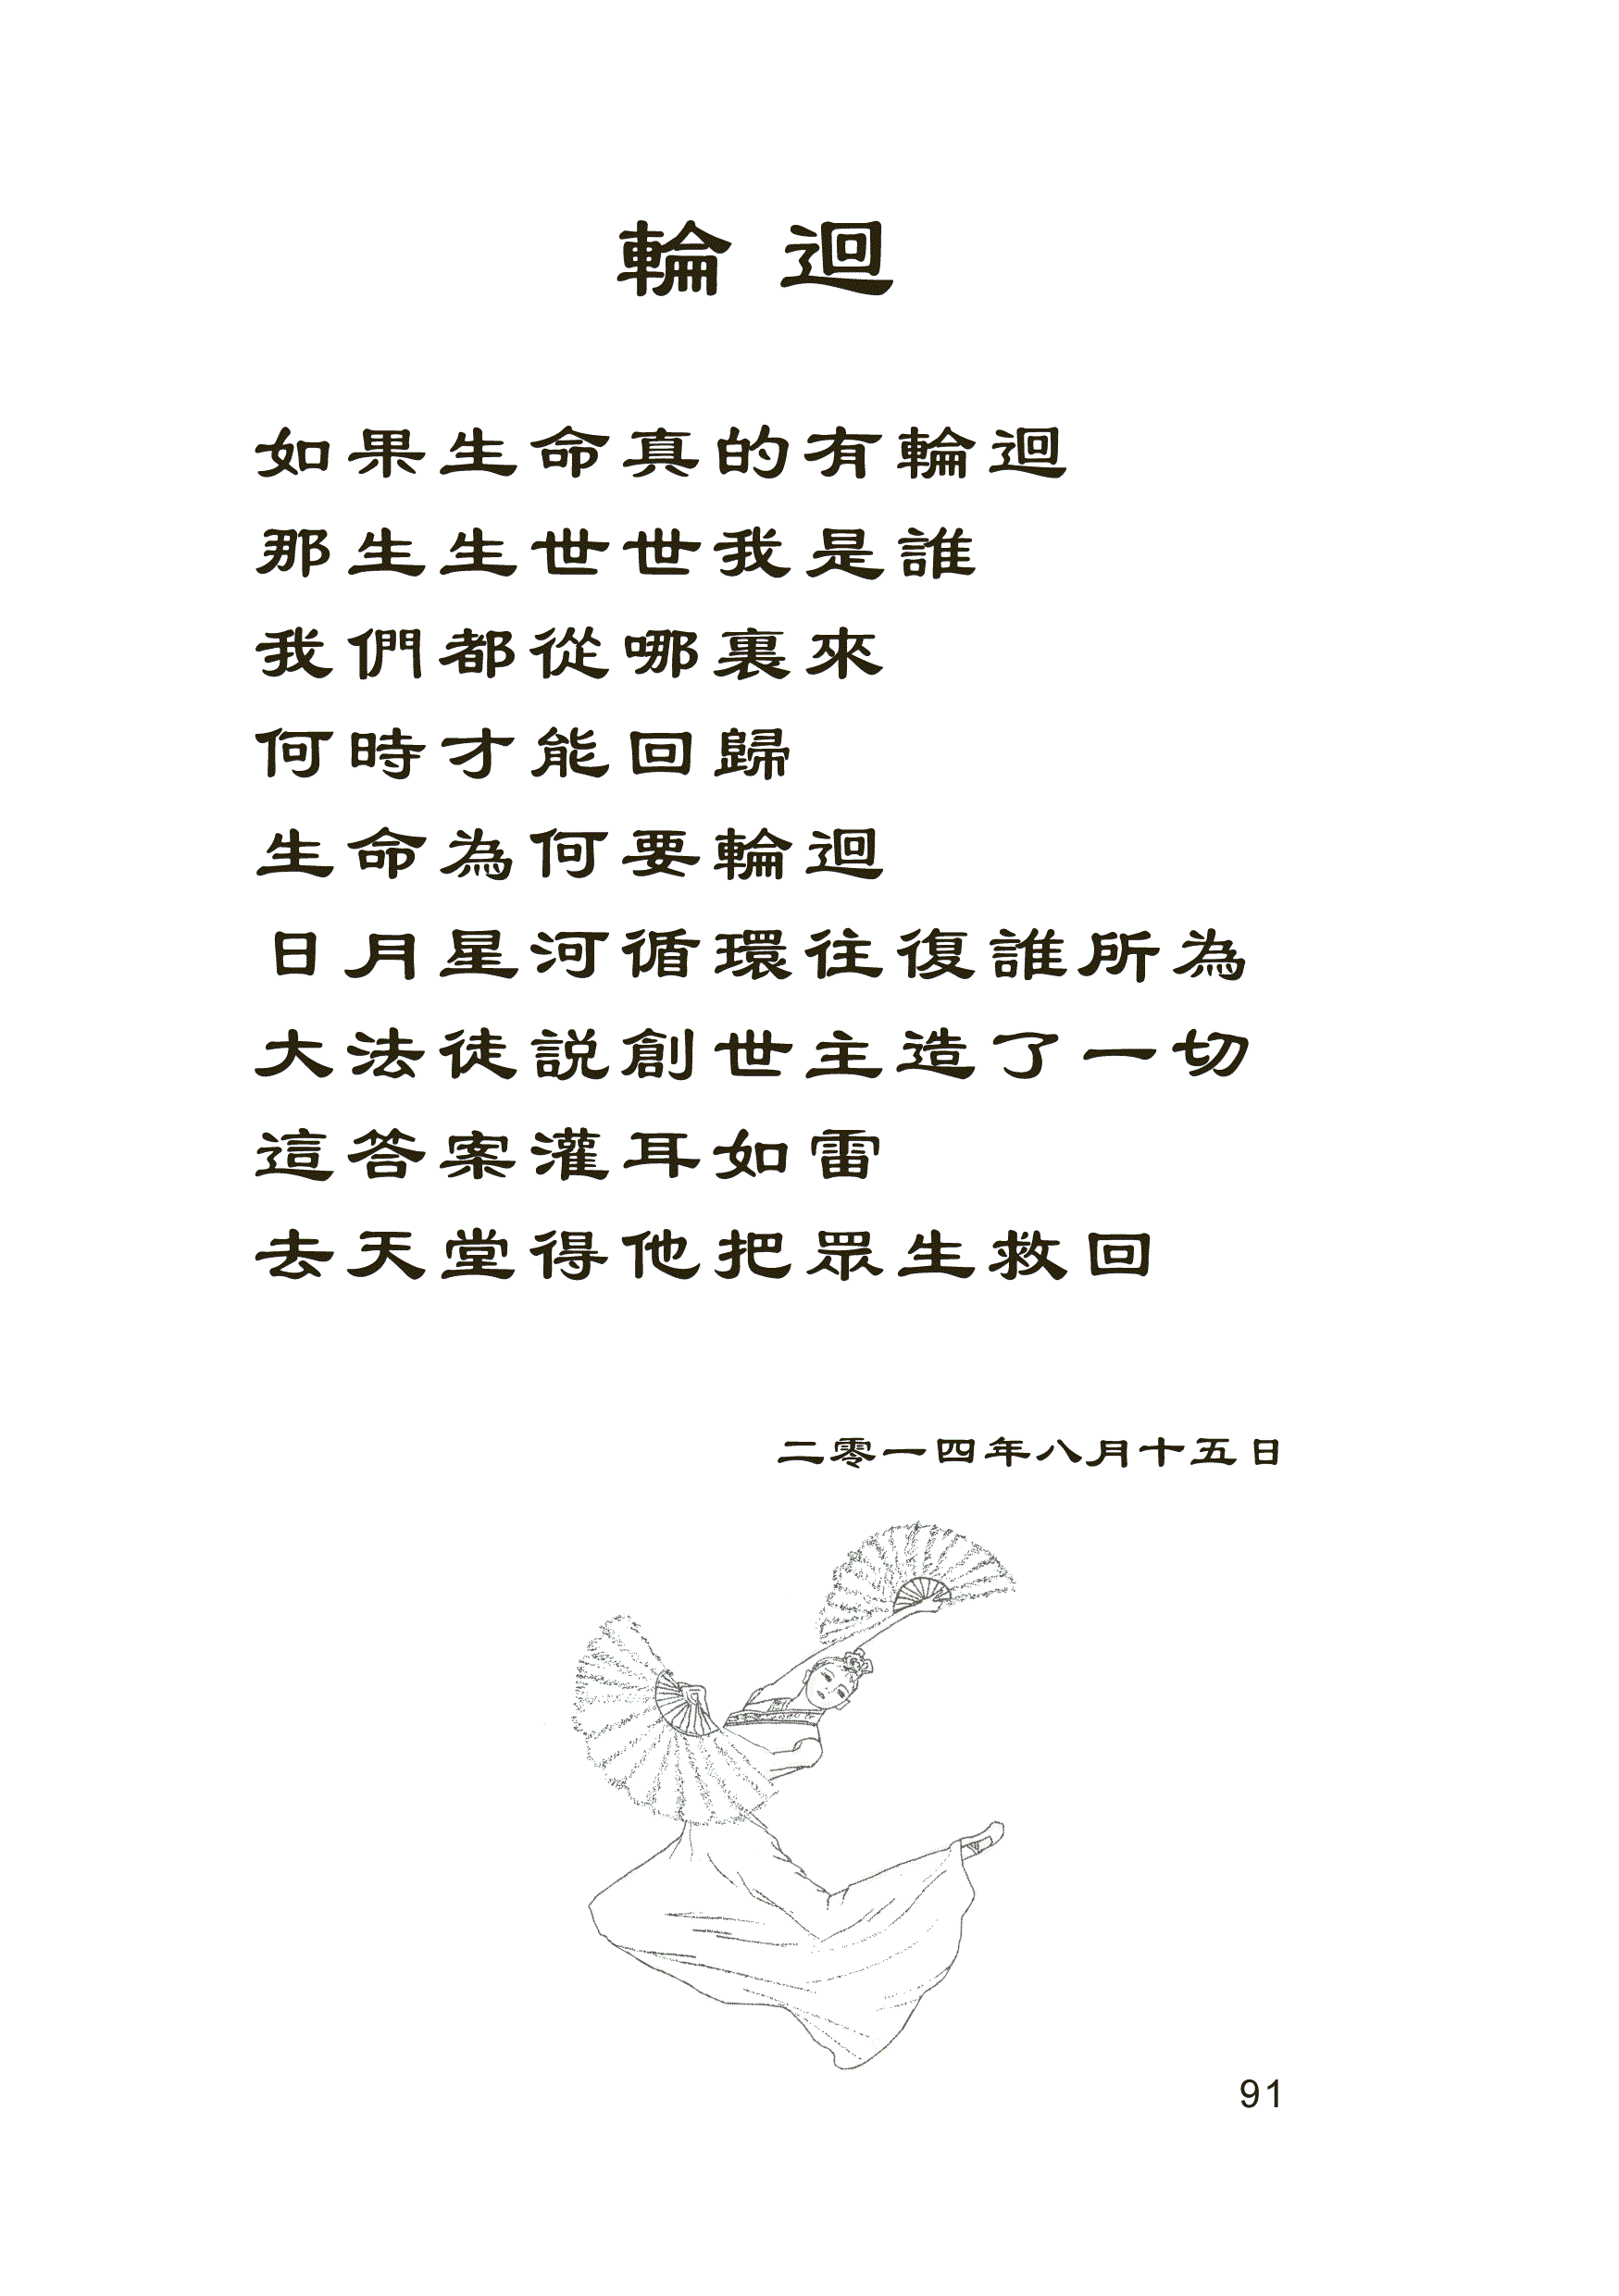 輪迴
如果生命真的有輪迴
那生生世世我是誰
我們都從哪裏來
何時才能回歸
生命為何要輪迴
日月星河循環往復誰所為
大法徒説創世主造了一切
這答案灌耳如雷
去天堂得他把眾生救回
二零一四年八月十五日
91